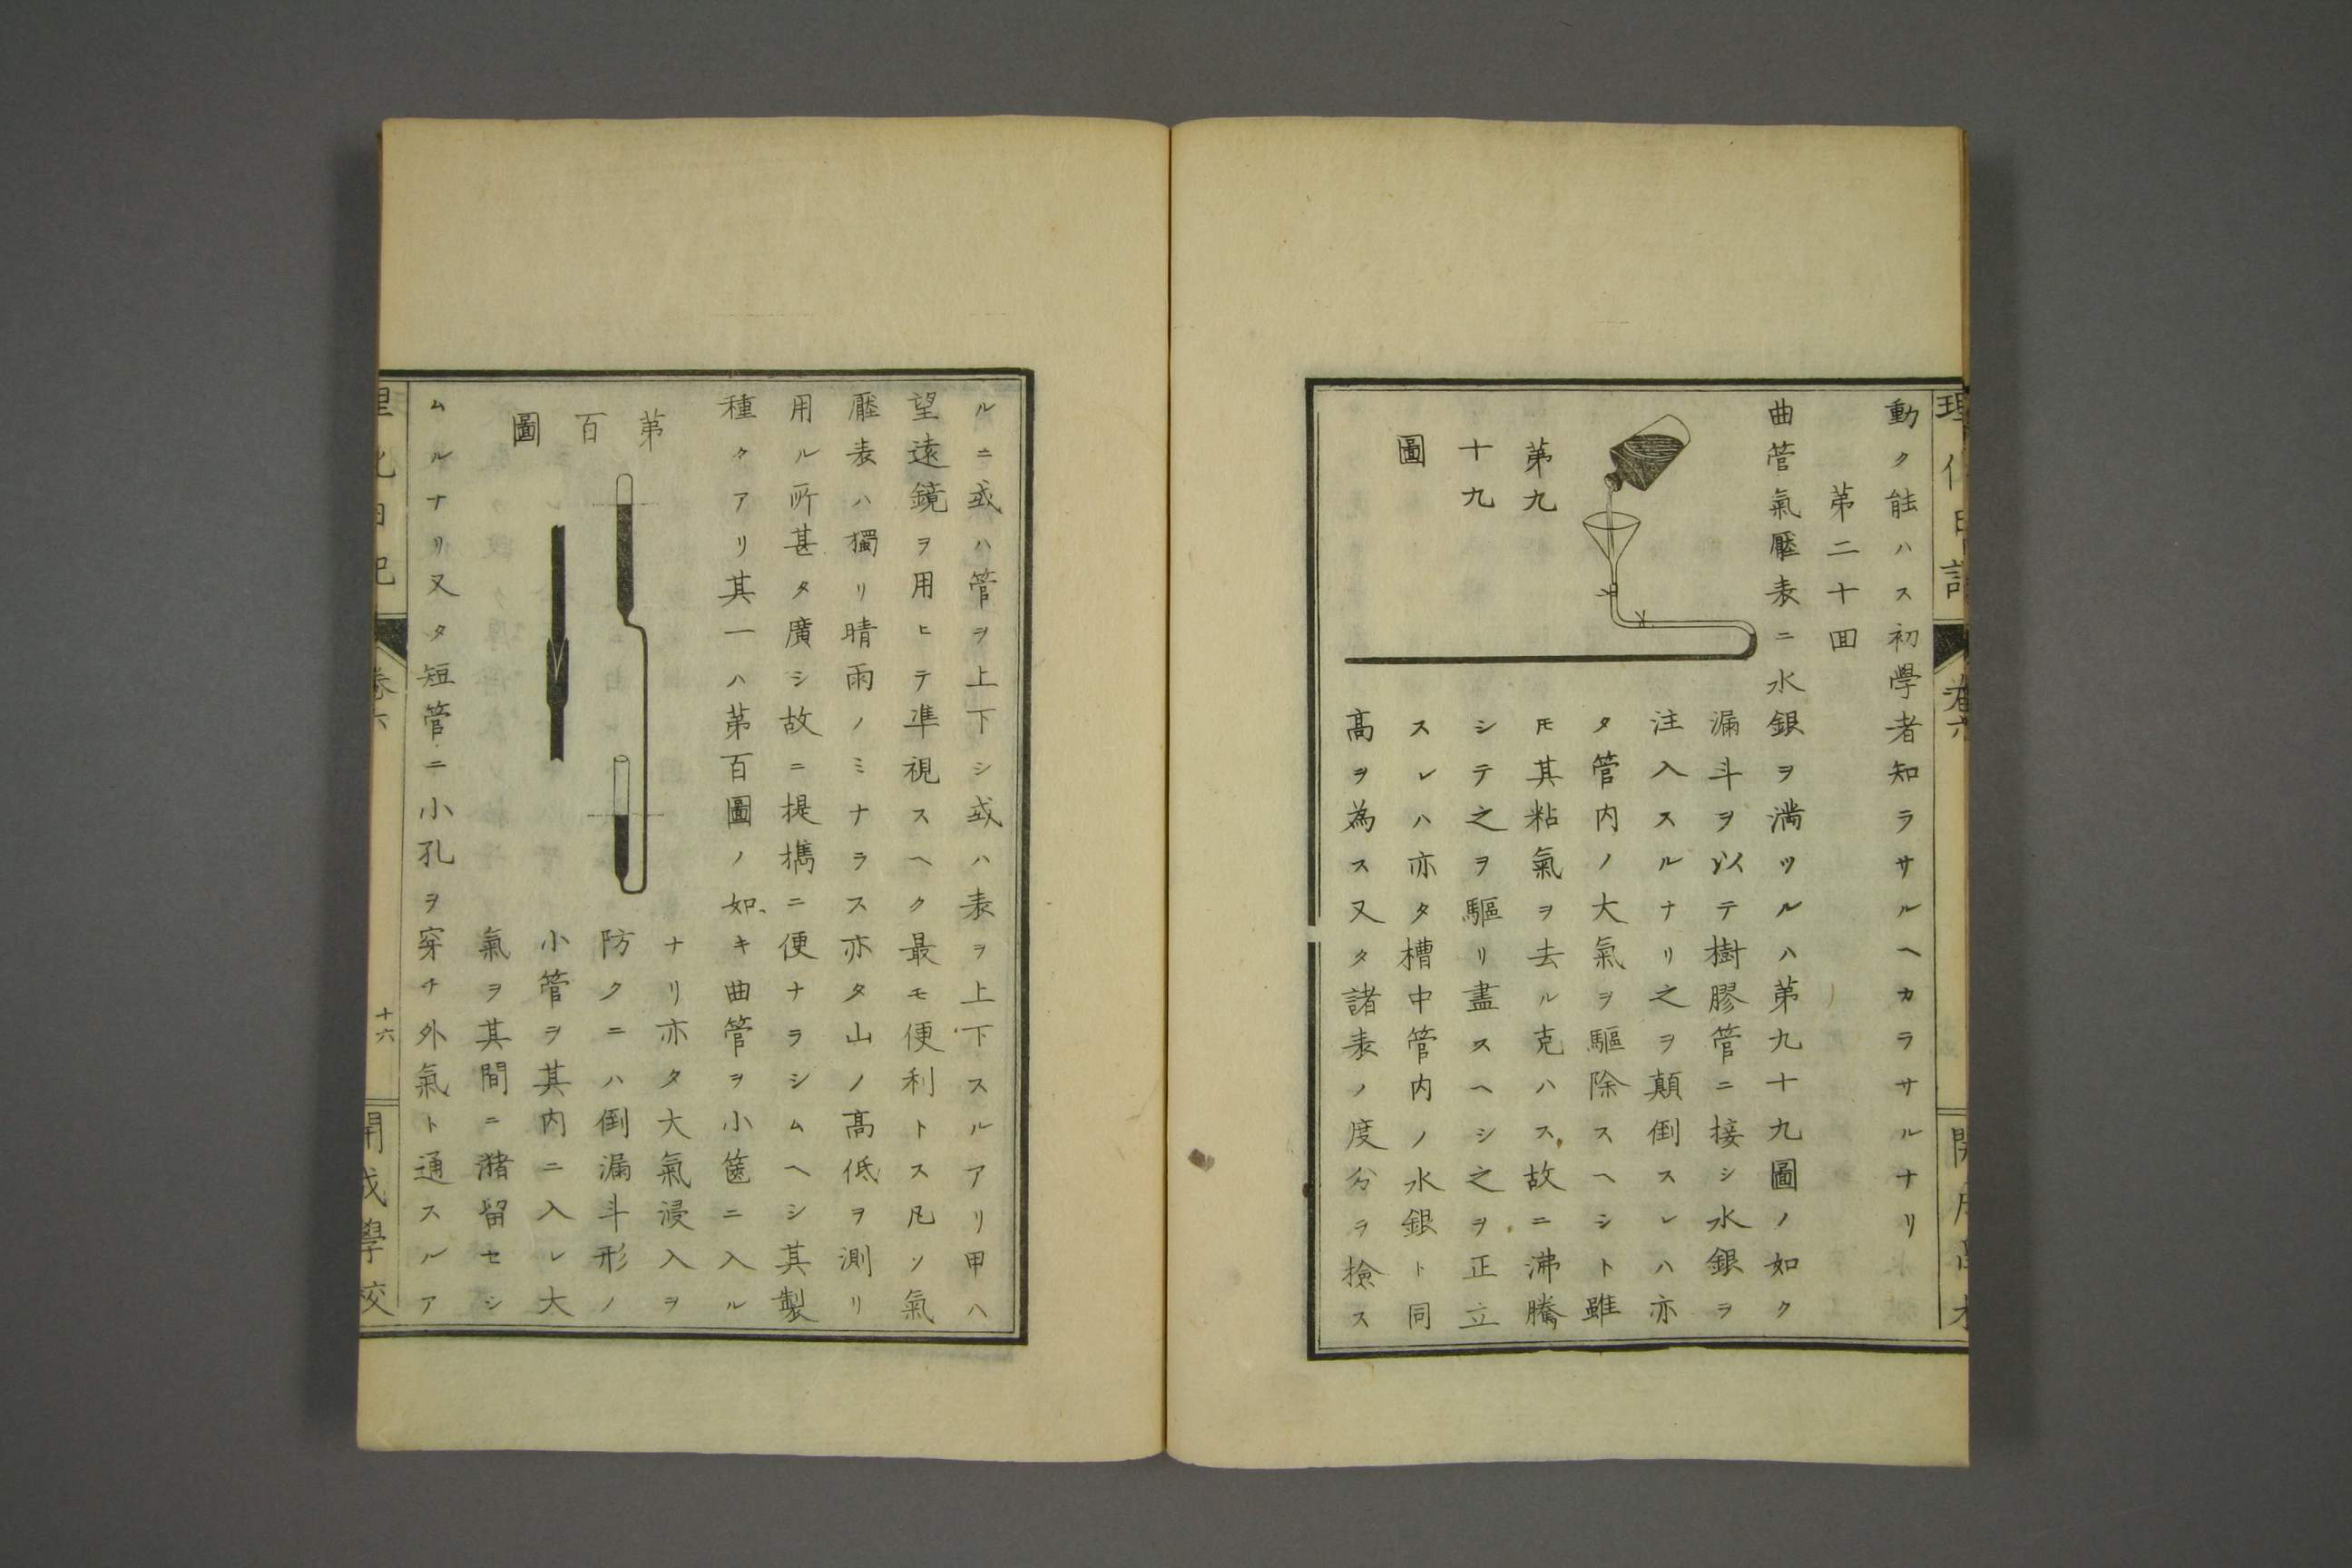 動ク能ハス初學者知ラサルヘカラサルナリ
第二十回
曲管氣壓表ニ水銀ヲ滿ツルハ第九十九圖ノ如ク
漏斗ヲ以テ樹膠管ニ接シ水銀ヲ
注入スルナリ之ヲ顛倒スレハ亦
タ管内ノ大氣ヲ驅除スヘシト雖
𪜈其粘氣ヲ去ル克ハス故ニ沸騰
シテ之ヲ驅リ盡スヘシ之ヲ正立
スレハ亦タ槽中管内ノ水銀ト同
高ヲ為ス又タ諸表ノ度分ヲ撿ス
第九
十九
圖
ルニ或ハ管ヲ上下シ或ハ表ヲ上下スルアリ甲ハ
望遠鏡ヲ用ヒテ準視スヘク最モ便利トス凡ソ氣
壓表ハ獨リ晴雨ノミナラス亦タ山ノ高低ヲ測リ
用ル所甚タ廣シ故ニ提擕ニ便ナラシムヘシ其製
種々アリ其一ハ第百圖ノ如キ曲管ヲ小篋ニ入ル
ナリ亦タ大氣浸入ヲ
防クニハ倒漏斗形ノ
小管ヲ其内ニ入レ大
氣ヲ其間ニ瀦留セシ
第
百
圖
ムルナリ又タ短管ニ小孔ヲ穿チ外氣ト通スルア
卷六
十六
開成學校